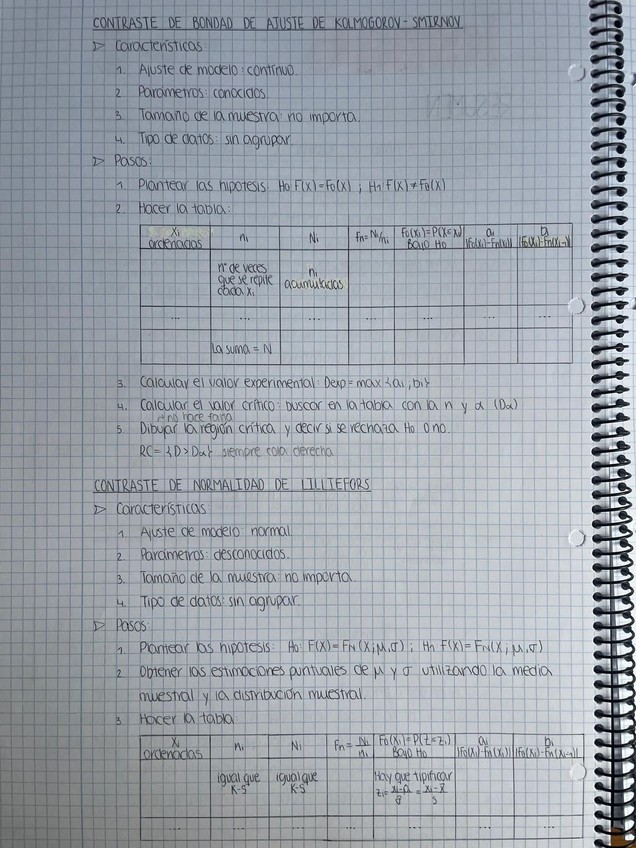 CONTRASTE DE BONDAD DE AJUSTE DE KOLMOGOROV-SMIRNOV
▷ Características
1. Ajuste de modelo: continuo.
2. Parámetros: conocidos
3. Tamaño de la muestra: no importa.
4. Tipo de datos: sin agrupar.
▷ Pasos:
1. Plantear las hipotesis: H0 F(X)=F0(X) ; H1 F(X)≠F0(X)
2. Hacer la tabla:
Xi ordenadas | ni | Ni | Fn=Ni/ni | F0(Xi)=P(X≤Xi) Bajo H0 | ai |F0(Xi)-Fn(Xi)| | bi |F0(Xi)-Fn(Xi-1)|
nº de veces que se repite cada xi | ni acumuladas
... | ... | ... | ... | ... | ... | ...
La suma = N
3. Calcular el valor experimental: Dexp = max {ai, bi}
4. Calcular el valor crítico: buscar en la tabla con la n y α (Dα)
no hace falta
5. Dibujar la región crítica y decir si se rechaza H0 o no.
RC = {D>Dα} siempre cola derecha
CONTRASTE DE NORMALIDAD DE LILLIEFORS
▷ Características
1. Ajuste de modelo: normal.
2. Parámetros: desconocidos.
3. Tamaño de la muestra: no importa.
4. Tipo de datos: sin agrupar.
▷ Pasos:
1. Plantear las hipotesis: H0: F(X)=FN(X;μ,σ) ; H1 F(X)=FN(X;μ,σ)
2. Obtener las estimaciones puntuales de μ y σ utilizando la media
muestral y la distribución muestral.
3. Hacer la tabla
Xi ordenadas | ni | Ni | Fn=Ni/ni | F0(Xi)=P(Z≤Zi) Bajo H0 | ai |F0(Xi)-Fn(Xi)| | bi |F0(Xi)-Fn(Xi-1)|
igual que K-S | igual que K-S | Hay que tipificar
... | ... | ... | ... | ... | ... | ...